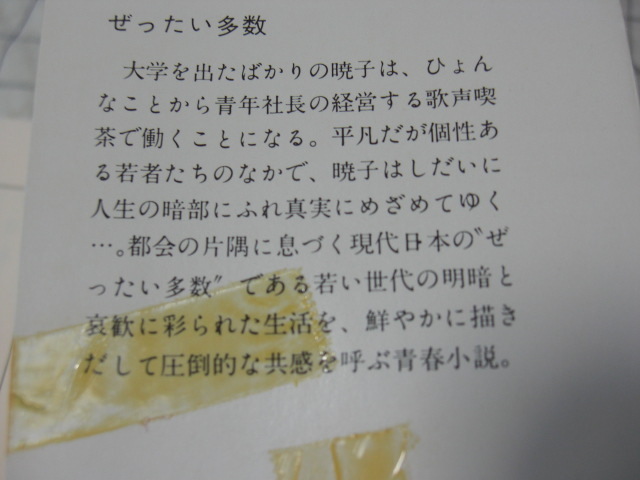 ぜったい多数
大学を出たばかりの暁子は、ひょん
なことから青年社長の経営する歌声喫
茶で働くことになる。平凡だが個性あ
る若者たちのなかで、暁子はしだいに
人生の暗部にふれ真実にめざめてゆく
…。都会の片隅に息づく現代日本の〝ぜ
ったい多数〟である若い世代の明暗と
哀歓に彩られた生活を、鮮やかに描き
だして圧倒的な共感を呼ぶ青春小説。